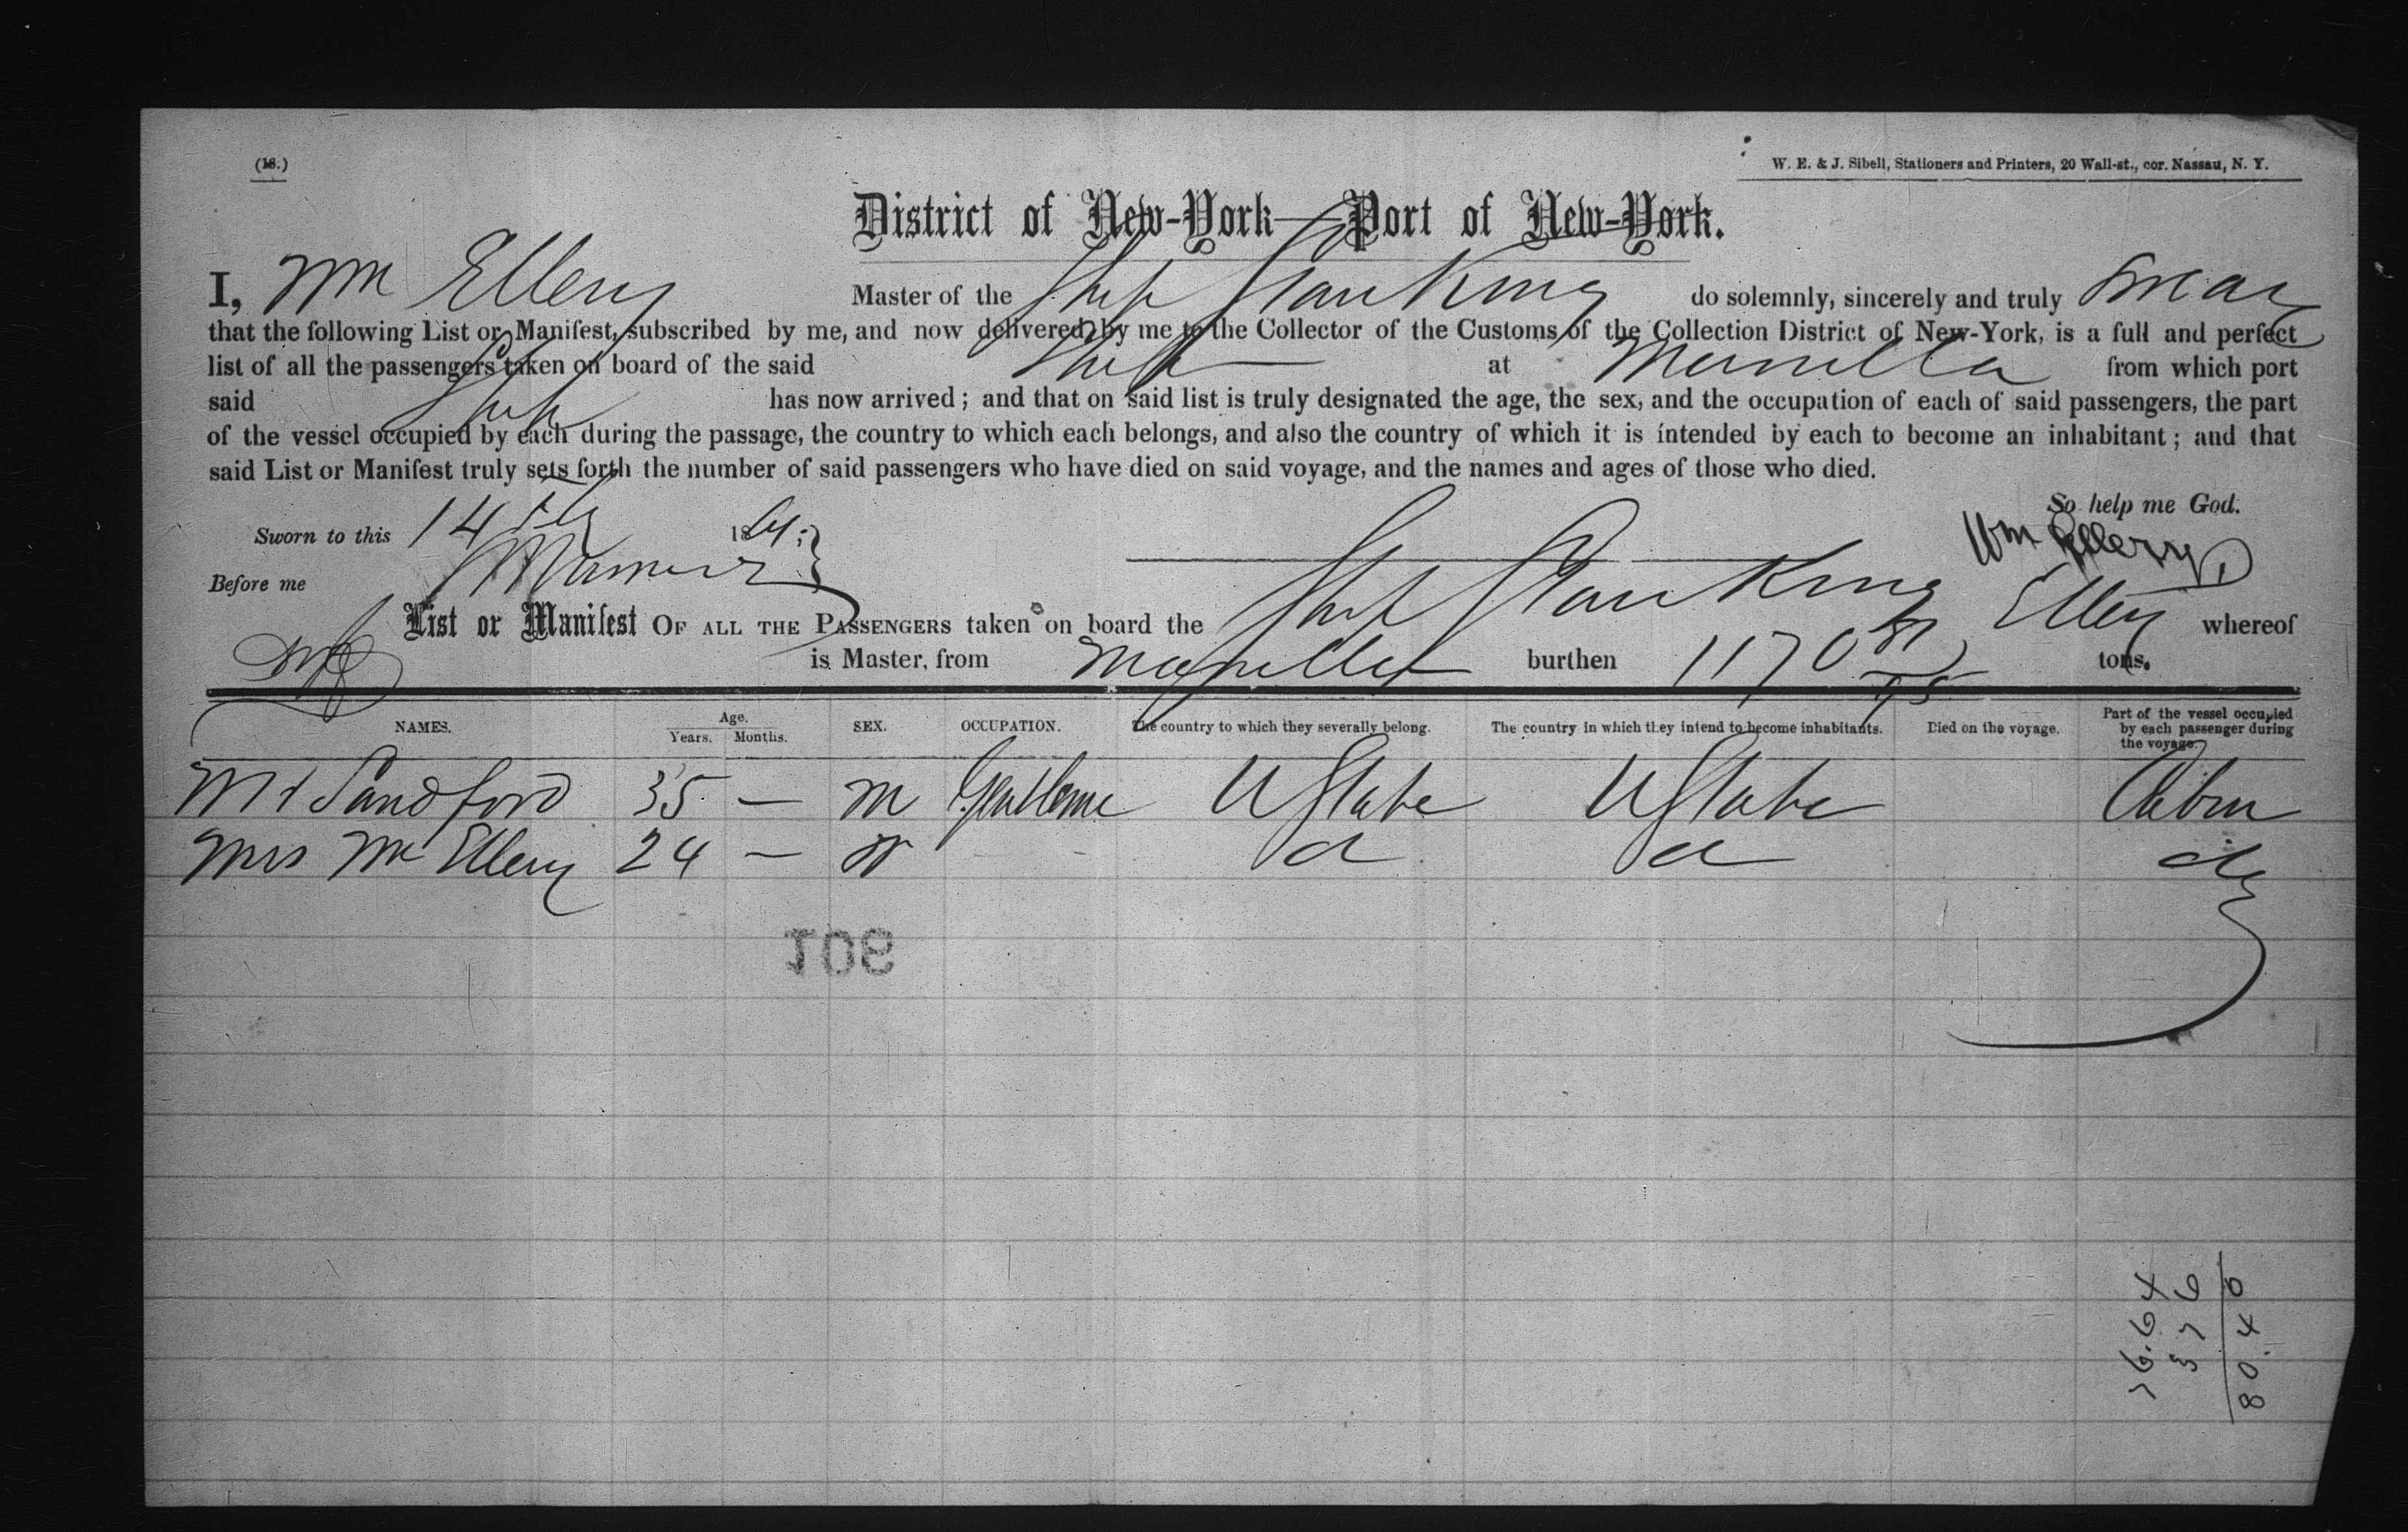 (18.)
W. E. & J. Sibell, Stationers and Printers, 20 Wall-st., cor. Nassau, N. Y.
District of New-York—Port of New-York.
I, Wm Ellery Master of the Ship Star King do solemnly, sincerely and truly swear
that the following List or Manifest, subscribed by me, and now delivered by me to the Collector of the Customs of the Collection District of New-York, is a full and perfect
list of all the passengers taken on board of the said Ship at Manilla from which port
said Ship has now arrived; and that on said list is truly designated the age, the sex, and the occupation of each of said passengers, the part
of the vessel occupied by each during the passage, the country to which each belongs, and also the country of which it is intended by each to become an inhabitant; and that
said List or Manifest truly sets forth the number of said passengers who have died on said voyage, and the names and ages of those who died.
So help me God.
Sworn to this 14th 1861.
Wm Ellery
Before me
List or Manifest OF ALL THE PASSENGERS taken on board the Ship Star King Ellery whereof
is Master, from Manilla burthen 1170 81/95 tons.
NAMES. Age. Years. Months. SEX. OCCUPATION. The country to which they severally belong. The country in which they intend to become inhabitants. Died on the voyage. Part of the vessel occupied by each passenger during the voyage.
Mr Sandford 35 — m Gentleme U State U State Cabin
Mrs Wm Ellery 24 — d d do
106
76.64
3 76
80.40